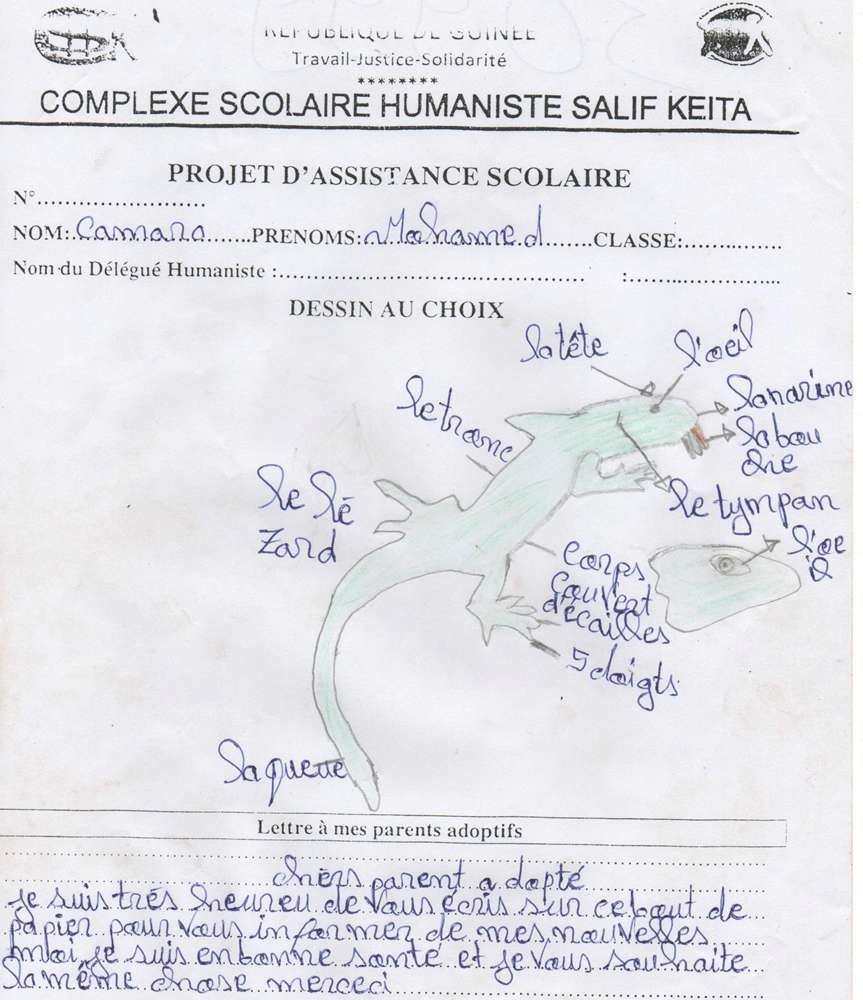 REPUBLIQUE DE GUINEE
Travail-Justice-Solidarité
********
COMPLEXE SCOLAIRE HUMANISTE SALIF KEITA
PROJET D'ASSISTANCE SCOLAIRE
N°...........................
NOM:.Camara.......PRENOMS:Mohamed.......CLASSE:...............
Nom du Délégué Humaniste :................................................ :...................
DESSIN AU CHOIX
la tête
l'oeil
le tronc
la narine
la bou
che
le lé
zard
le tympan
l'oe
il
corps
couvert
d'écailles
5 doigts
la queue
Lettre à mes parents adoptifs
chers parent adopté
je suis trés heureu de vous écris sur ce bout de
papier pour vous informer de mes nouvelles
moi, je suis en bonne santé et je vous souhaite
la même chose merceci